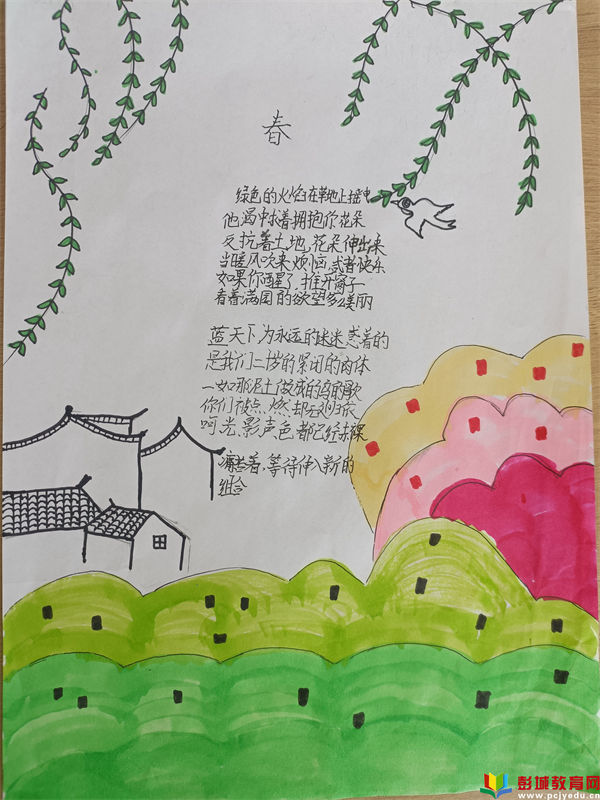 春
绿色的火焰在草地上摇曳
他渴求着拥抱你花朵
反抗着土地,花朵伸出来
当暖风吹来烦恼,或者快乐
如果你醒了,推开窗子
看着满园的欲望多么美丽
蓝天下为永远的迷迷惑着的
是我们二十岁的紧闭的肉体
一如那泥土做成的鸟的歌
你们被点燃,却无处归依
呵,光,影,声,色,都已经赤裸
痛苦着,等待伸入新的
组合
彭城教育网
www.pcjyedu.cn